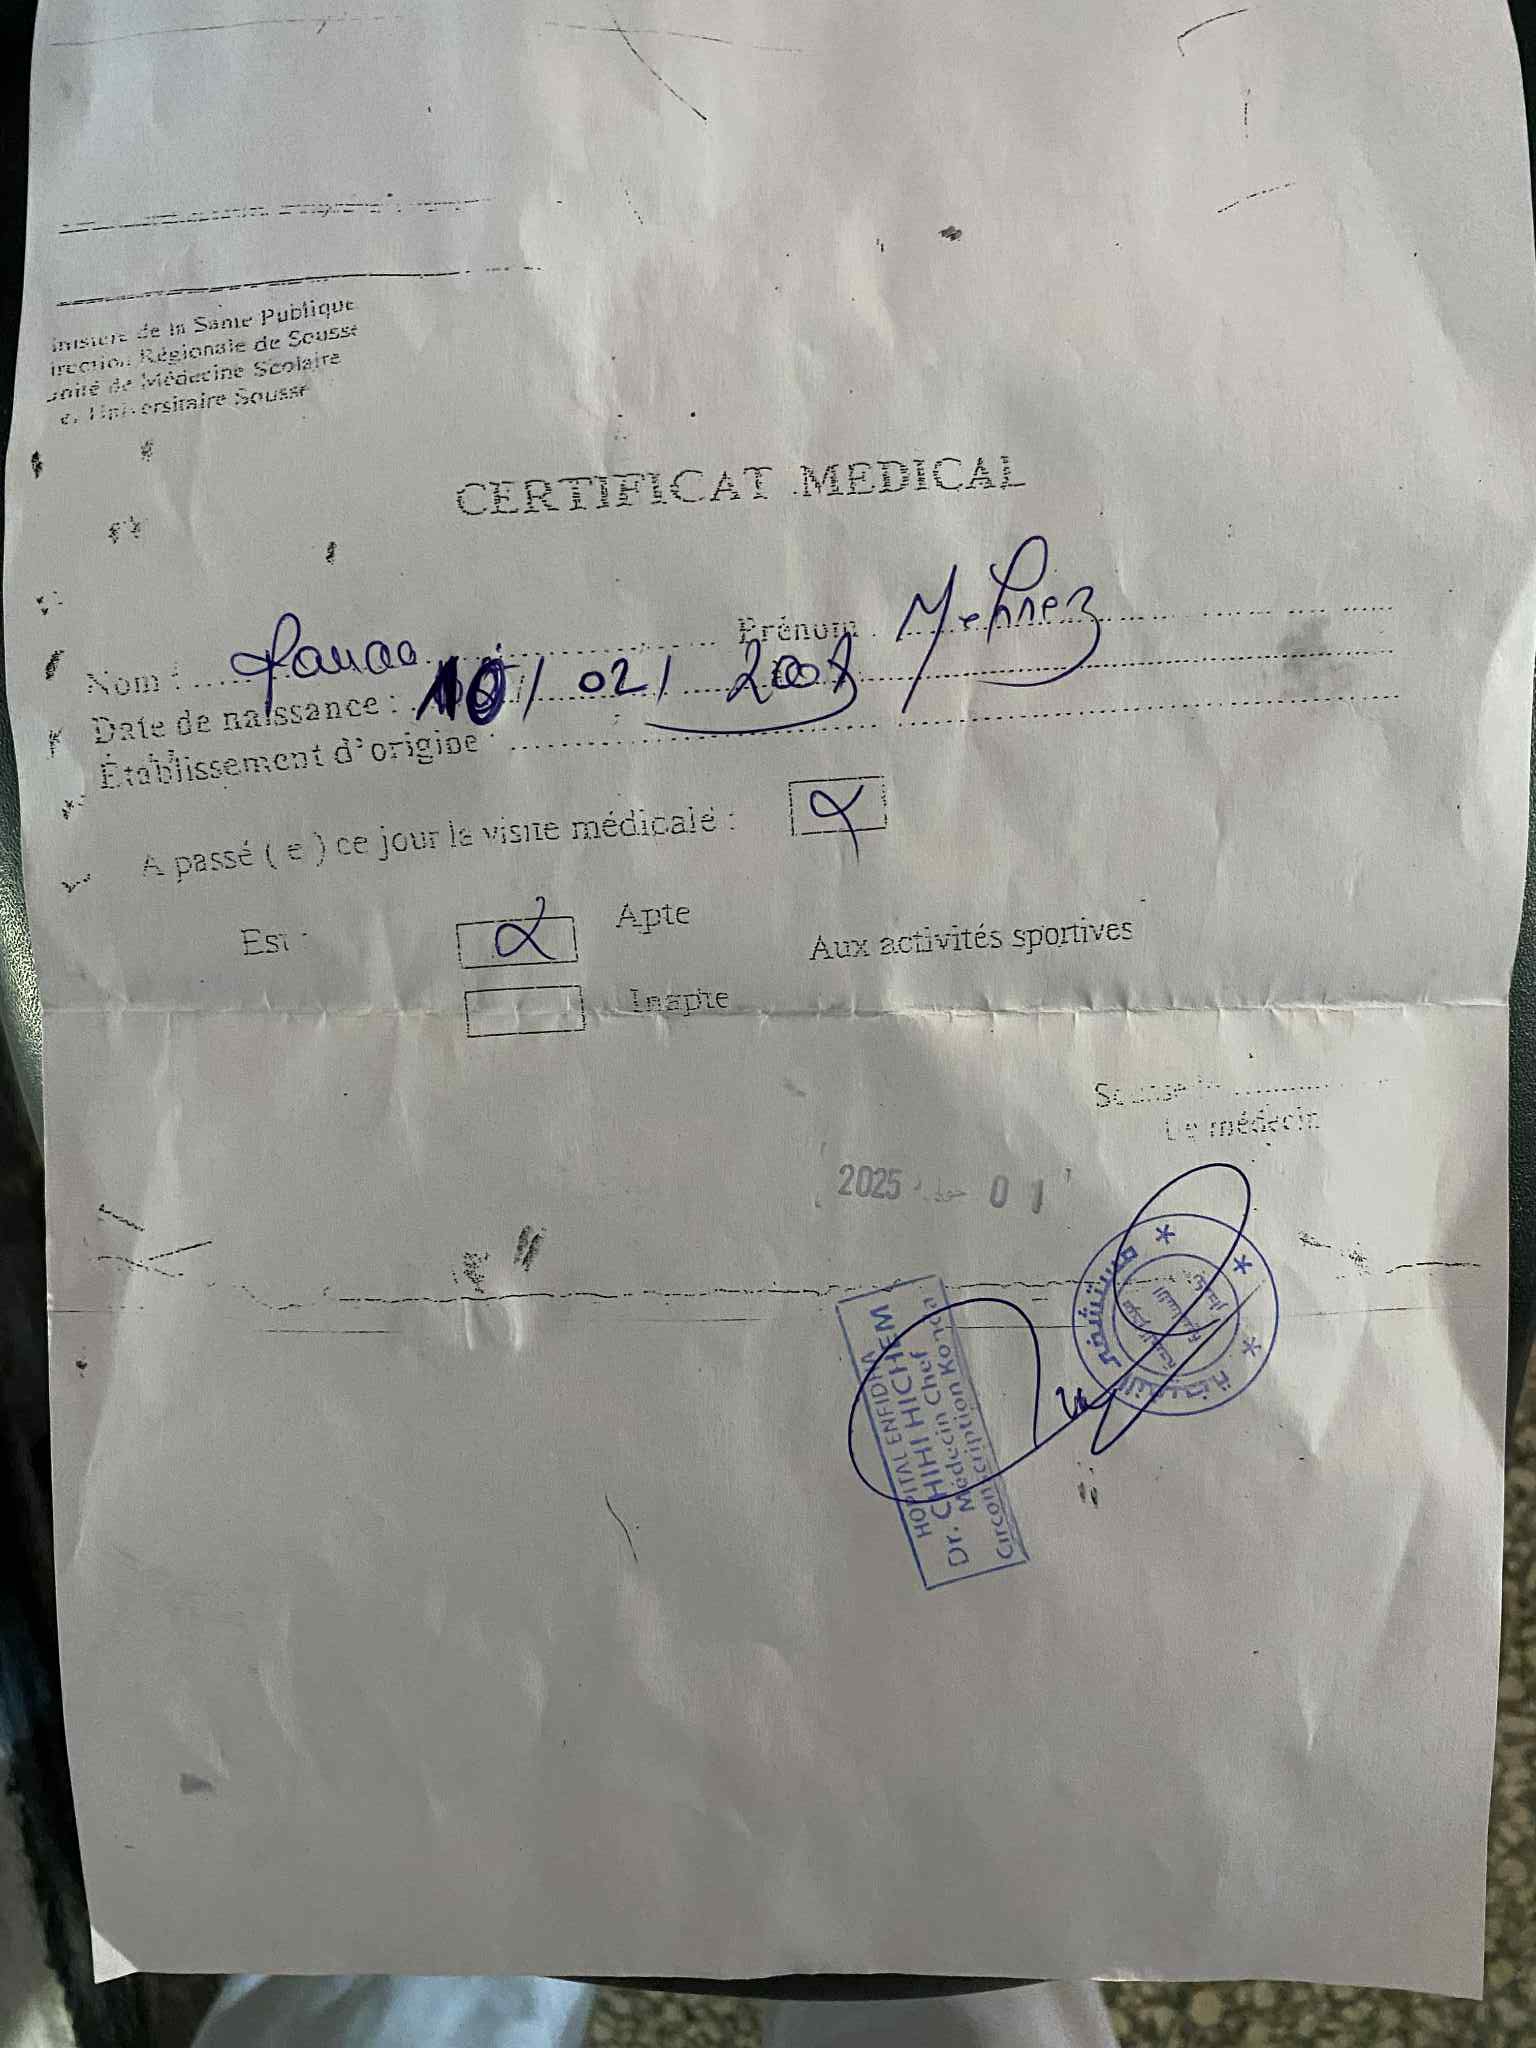 de la Santé Publique
Régionale de Sousse
de Médecine Scolaire
Universitaire Sousse
CERTIFICAT MEDICAL
Nom : Prénom : Mehrez
Date de naissance : 10/02/
Établissement d'origine :
A passé ( e ) ce jour la visite médicale :
Est : Apte Aux activités sportives
Inapte
Sousse le
Le médecin
2025 01
HOPITAL ENFIDHA
Dr. CHIHI HICHEM
Médecin Chef
Circonscription Kondar
مستشفى
النفيضة